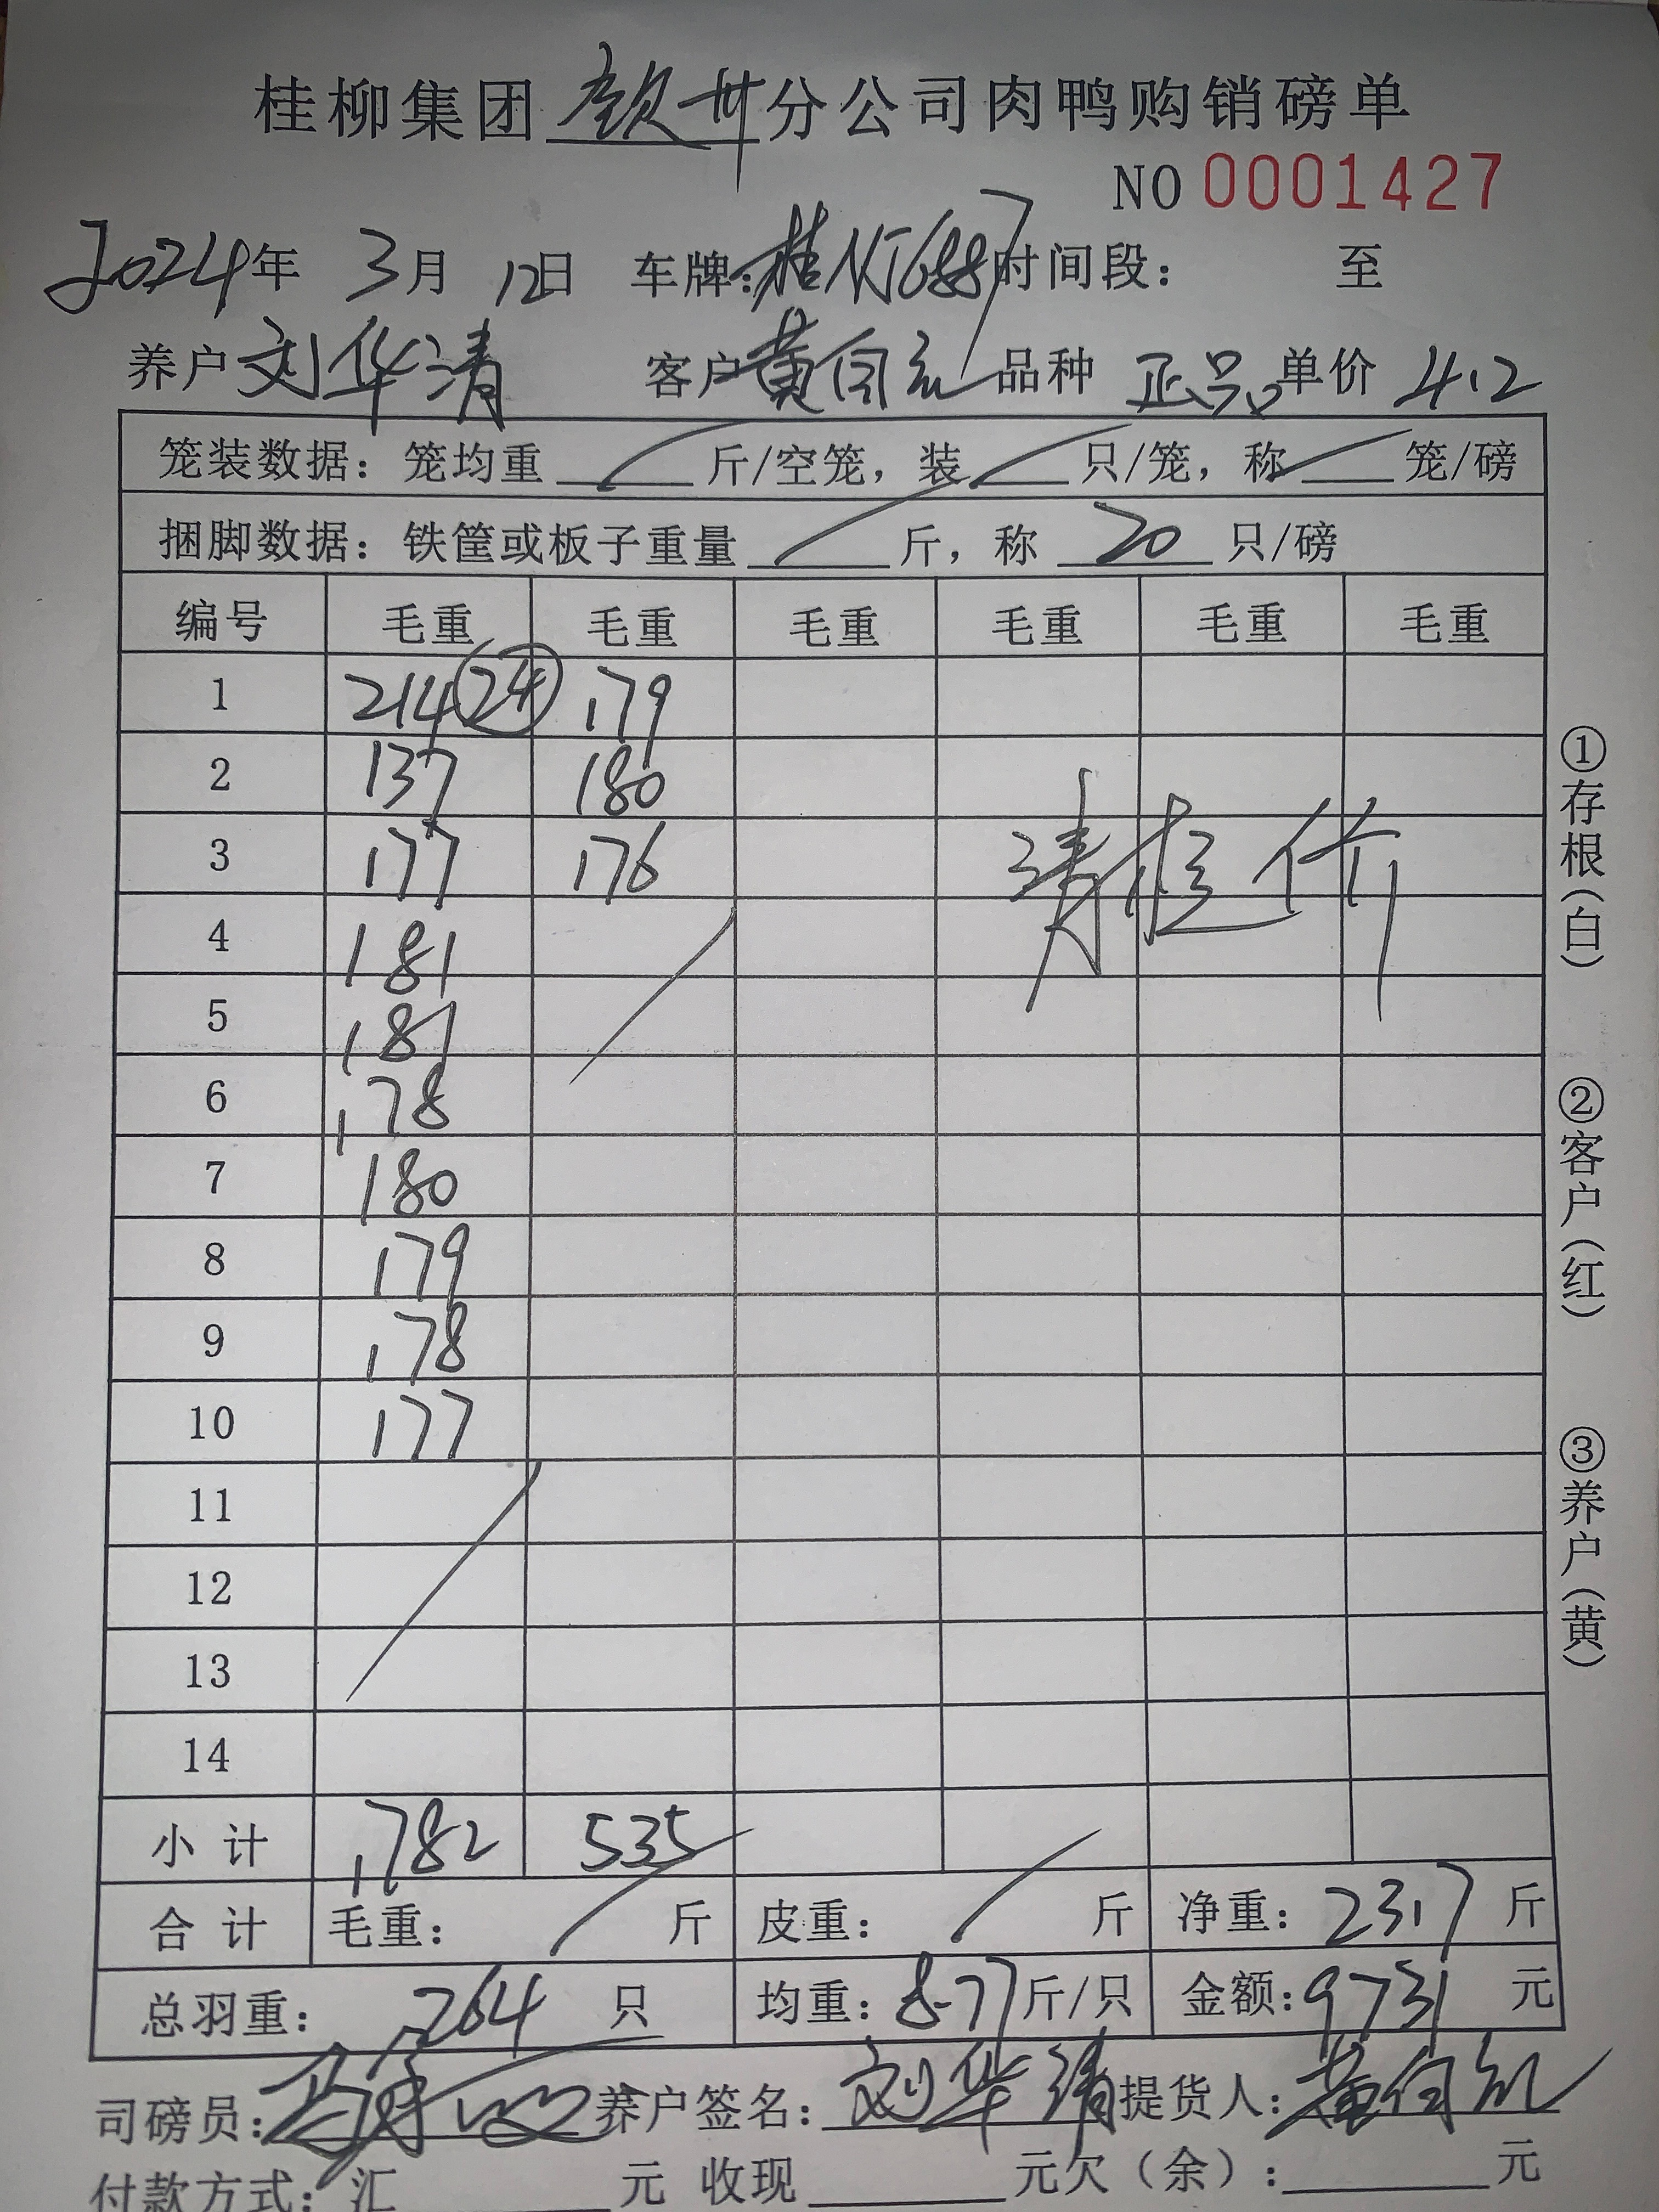 桂柳集团 钦州 分公司肉鸭购销磅单
NO 0001427
2024年 3月 12日 车牌：桂NJ6887 时间段： 至
养户 刘华清 客户 黄向 品种 正品 单价 4.2
笼装数据：笼均重 斤/空笼，装 只/笼，称 笼/磅
捆脚数据：铁筐或板子重量 斤，称 20 只/磅
编号 毛重 毛重 毛重 毛重 毛重 毛重
1 214 24 179
2 137 180
3 177 176
请提价
4 181
5 181
6 178
7 180
8 179
9 178
10 177
11
12
13
14
小计 1782 535
合计 毛重： 斤 皮重： 斤 净重：2317 斤
总羽重： 264 只 均重：8.77斤/只 金额：9731 元
司磅员： 养户签名：刘华清 提货人：黄向
付款方式：汇 元 收现 元欠（余）： 元
①存根（白）
②客户（红）
③养户（黄）